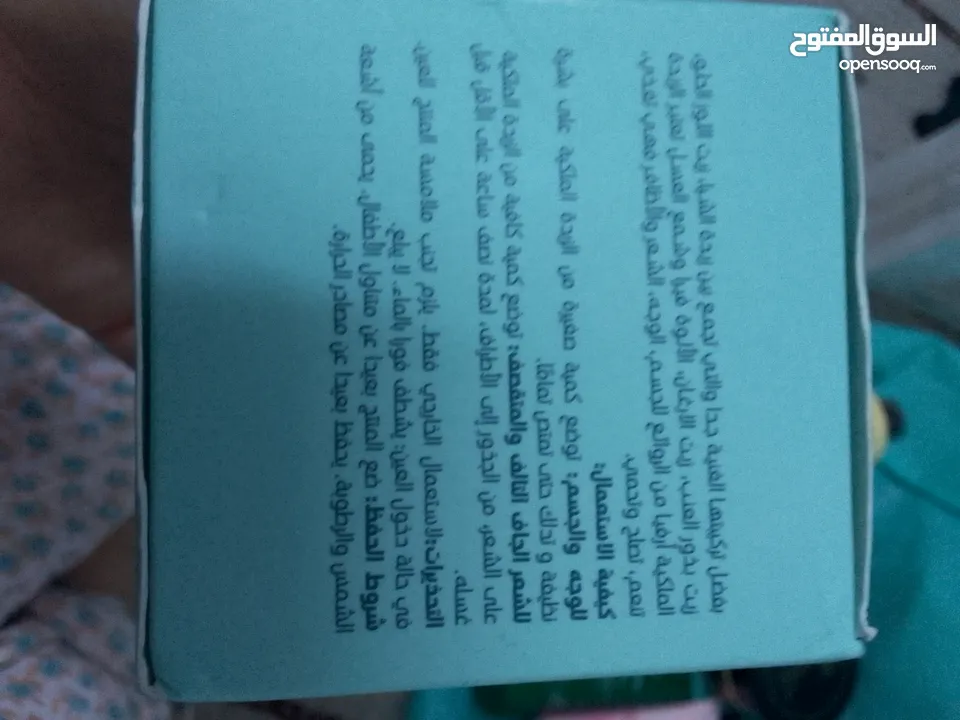 السوق المفتوح
opensooq.com
بفضل تركيبتها الغنية جدا والتي تجمع بين زبدة الشيا، زيت اللوز الحلو،
زيت بذور العنب، زيت الارغان، الألوة فيرا وشمع العسل تعتبر الزبدة
الملكية أرفيا من الروائع للجسم، الوجه، الشعر والأظافر فهي تغذي،
تنعم، تصلح وتحمي.
كيفية الاستعمال:
للوجه والجسم: توضع كمية صغيرة من الزبدة الملكية على بشرة
نظيفة و تدلك حتى تمتص تمامًا.
للشعر الجاف التالف والمتقصف: توضع كمية كافية من الزبدة الملكية
على الشعر، من الجذور إلى الأطراف، لمدة نصف ساعة على الأقل قبل
غسله.
التحذيرات: للاستعمال الخارجي فقط. يلزم تجنب ملامسة المنتج العين.
في حالة دخول العين: يشطف فورا بالماء. لا يبلع.
شروط الحفظ: ضع المنتج بعيدا عن متناول الأطفال. يحمى من أشعة
الشمس والرطوبة. يحفظ بعيدا عن مصادر الحرارة.